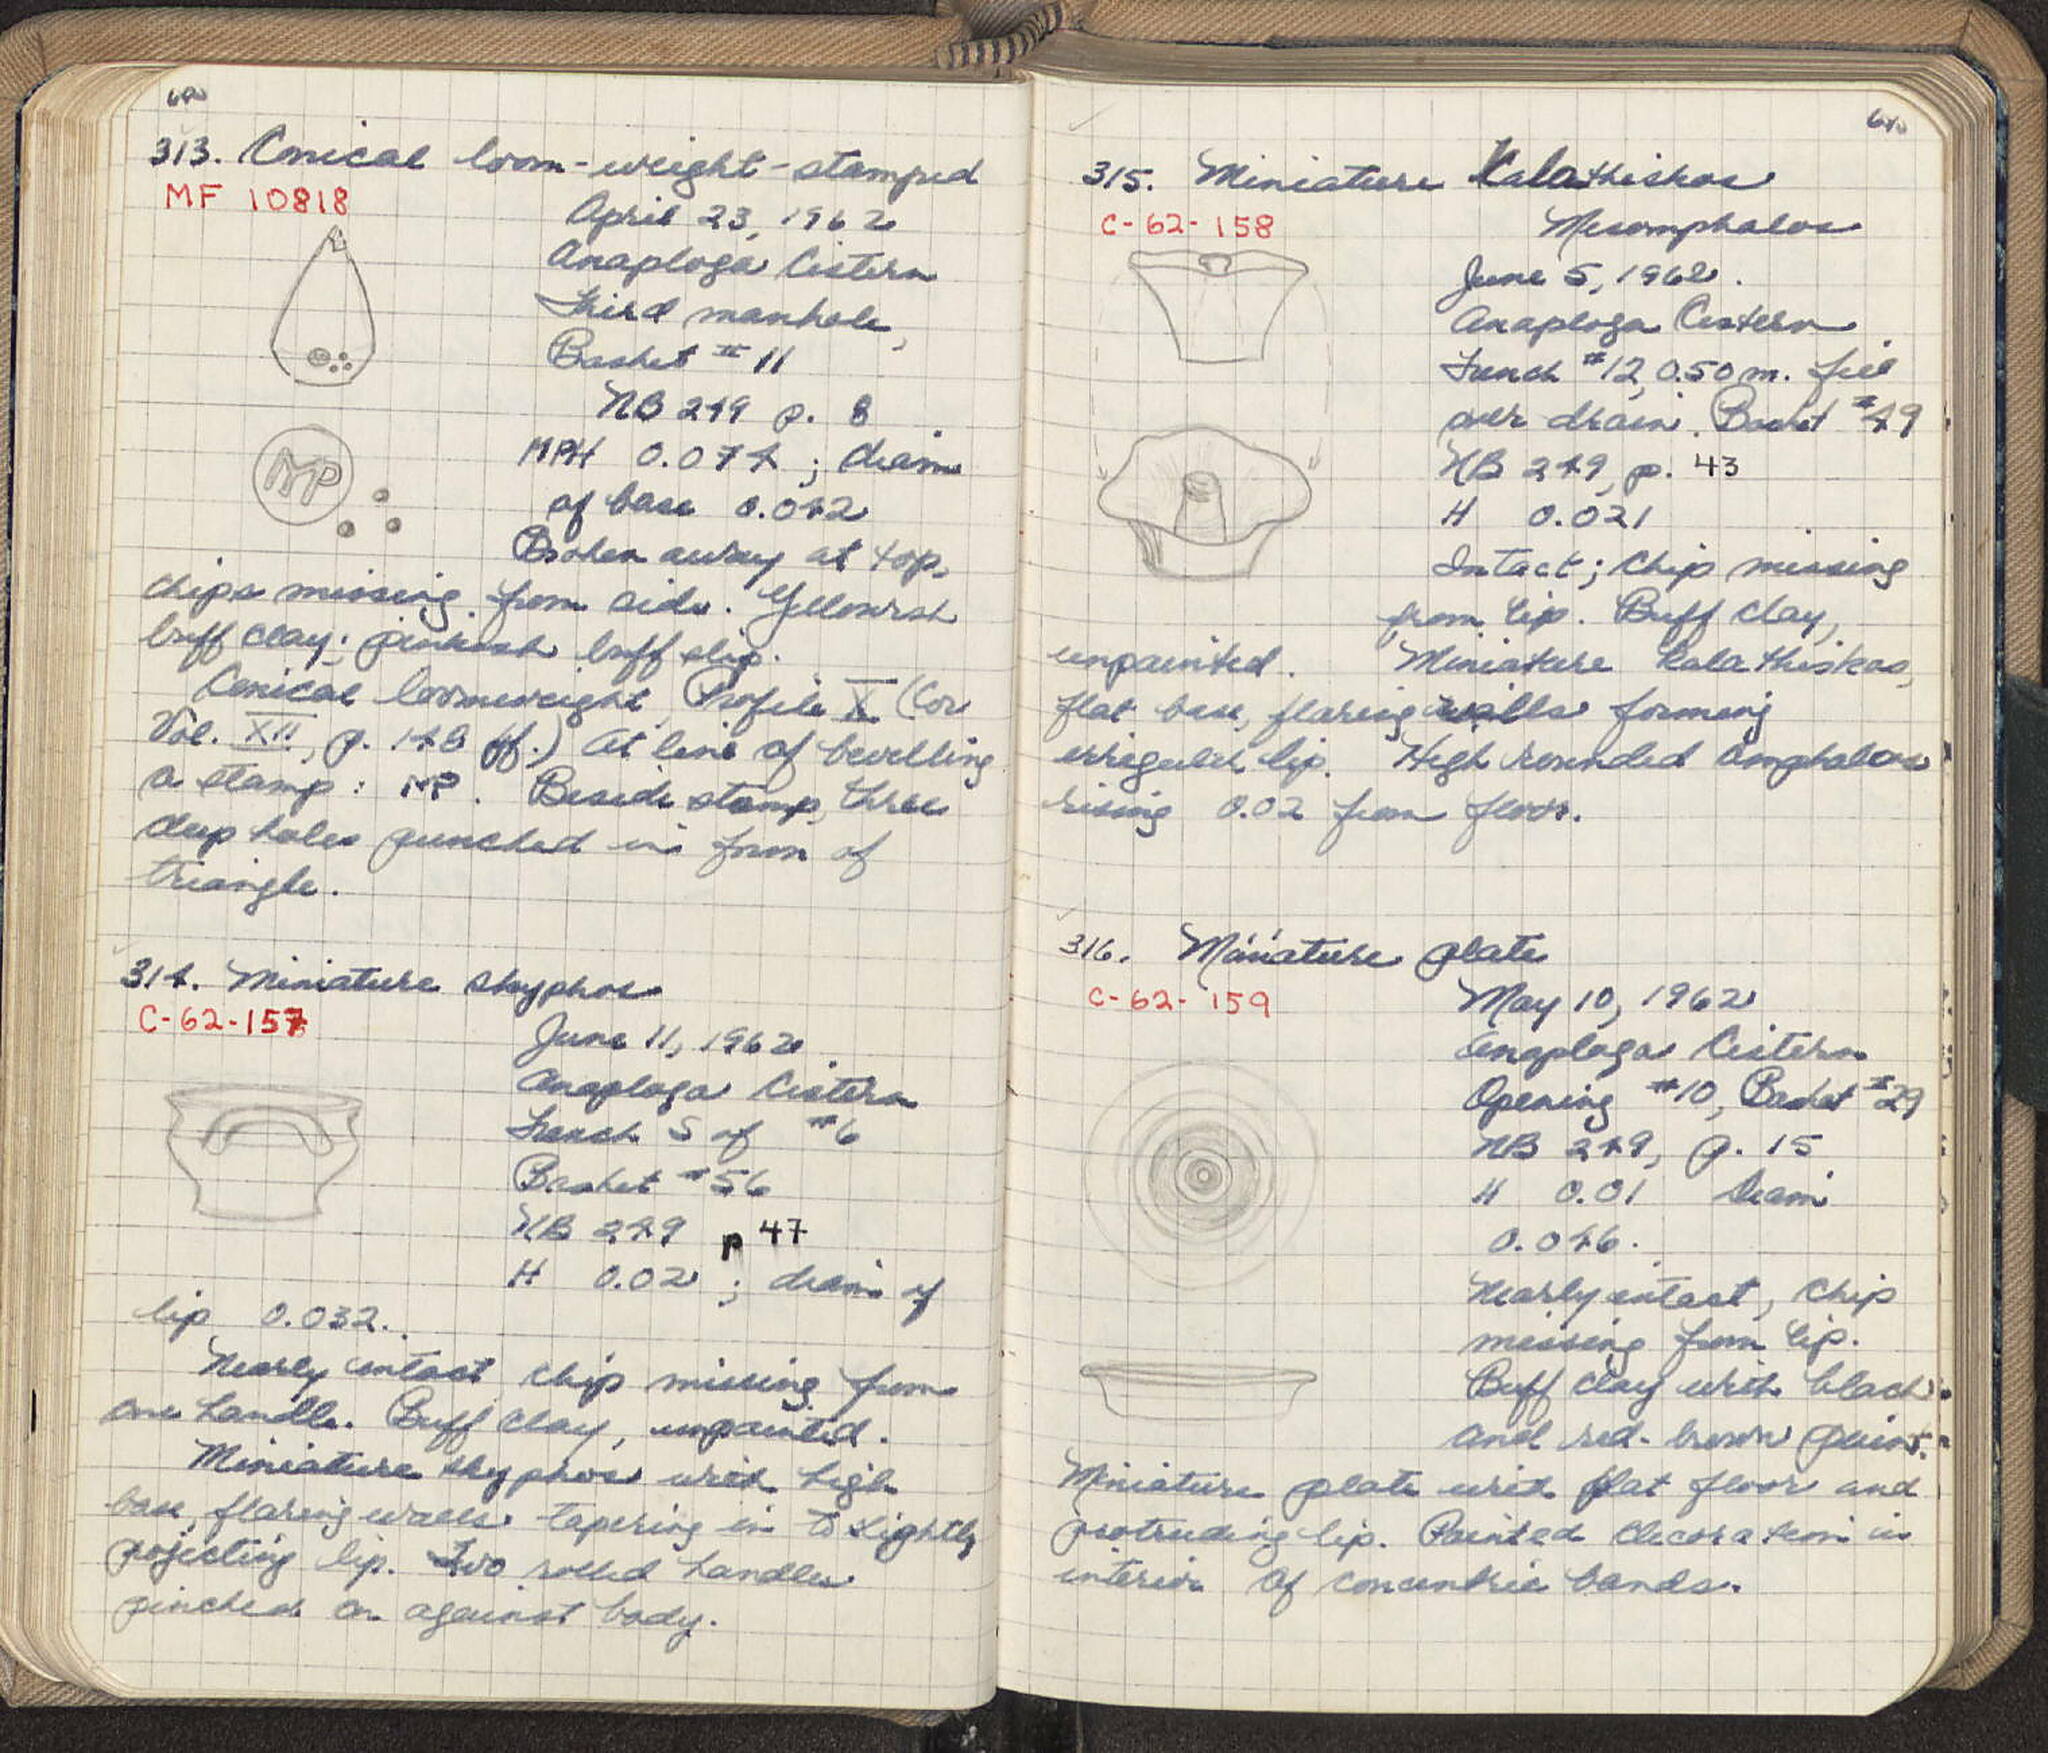 313. Conical loom-weight-stamped
MF 10818
April 23, 1962
Anaploga Cistern
Third manhole,
Basket # 11
NB 249 p. 8
MPH 0.074 ; diam
of base 0.042
MP
Broken away at top,
chips missing from side. Yellowish
buff clay; pinkish buff slip.
Conical loomweight, Profile X (Cor
Vol. XII, p. 148 ff.) At line of bevelling
a stamp: MP. Beside stamp, three
deep holes punched in form of
triangle.
314. Miniature skyphos
C-62-157
June 11, 1962
Anaploga Cistern
Trench S of #6
Basket #56
NB 249 p 47
H 0.02 ; diam of
lip 0.032.
Nearly intact chip missing from
one handle. Buff clay, unpainted.
Miniature skyphos with high
base, flaring walls tapering in to slightly
projecting lip. Two rolled handles
pinched on against body.
315. Miniature Kalathiskos
C-62-158
Mesomphalos
June 5, 1962.
Anaploga Cistern
Trench #12, 0.50 m. fill
over drain. Basket #49
NB 249, p. 43
H 0.021
Intact; chip missing
from lip. Buff clay,
unpainted. Miniature kalathiskos,
flat base, flaring walls forming
irregular lip. High rounded omphalos
rising 0.02 from floor.
316. Miniature plate
C-62-159
May 10, 1962
Anaploga Cistern
Opening #10, Basket #29
NB 249, p. 15
H 0.01 Diam
0.046.
Nearly intact, chip
missing from lip.
Buff clay with black
and red-brown paint.
Miniature plate with flat floor and
protruding lip. Painted decoration in
interior of concentric bands.